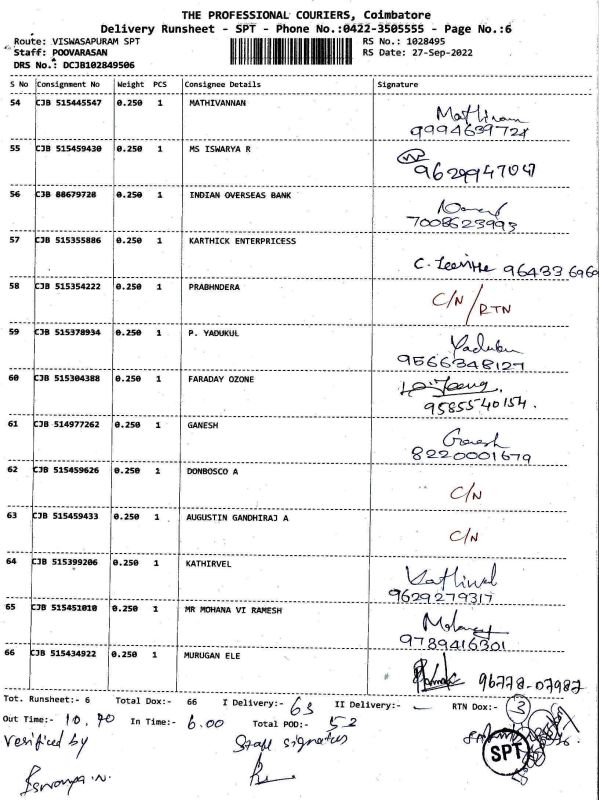 THE PROFESSIONAL COURIERS, Coimbatore
Delivery Runsheet - SPT - Phone No.:0422-3505555 - Page No.:6
Route: VISWASAPURAM SPT RS No.: 1028495
Staff: POOVARASAN RS Date: 27-Sep-2022
DRS No.: DCJB102849506
S No Consignment No Weight PCS Consignee Details Signature
54 CJB 515445547 0.250 1 MATHIVANNAN
9994639721
55 CJB 515459430 0.250 1 MS ISWARYA R
9629947047
56 CJB 88679728 0.250 1 INDIAN OVERSEAS BANK
7008623993
57 CJB 515355886 0.250 1 KARTHICK ENTERPRICESS
96433 6960
58 CJB 515354222 0.250 1 PRABHNDERA C/N / RTN
59 CJB 515378934 0.250 1 P. YADUKUL
9566348127
60 CJB 515304388 0.250 1 FARADAY OZONE
9585540154.
61 CJB 514977262 0.250 1 GANESH Ganesh
8220001679
62 CJB 515459626 0.250 1 DONBOSCO A C/N
63 CJB 515459433 0.250 1 AUGUSTIN GANDHIRAJ A C/N
64 CJB 515399206 0.250 1 KATHIRVEL
9629279317
65 CJB 515451010 0.250 1 MR MOHANA VI RAMESH
9789416301
66 CJB 515434922 0.250 1 MURUGAN ELE 96778-07987
Tot. Runsheet:- 6 Total Dox:- 66 I Delivery:- 63 II Delivery:- — RTN Dox:- 3
Out Time:- 10.40 In Time:- 6.00 Total POD:- 52
Verified by Staff signature
SPT